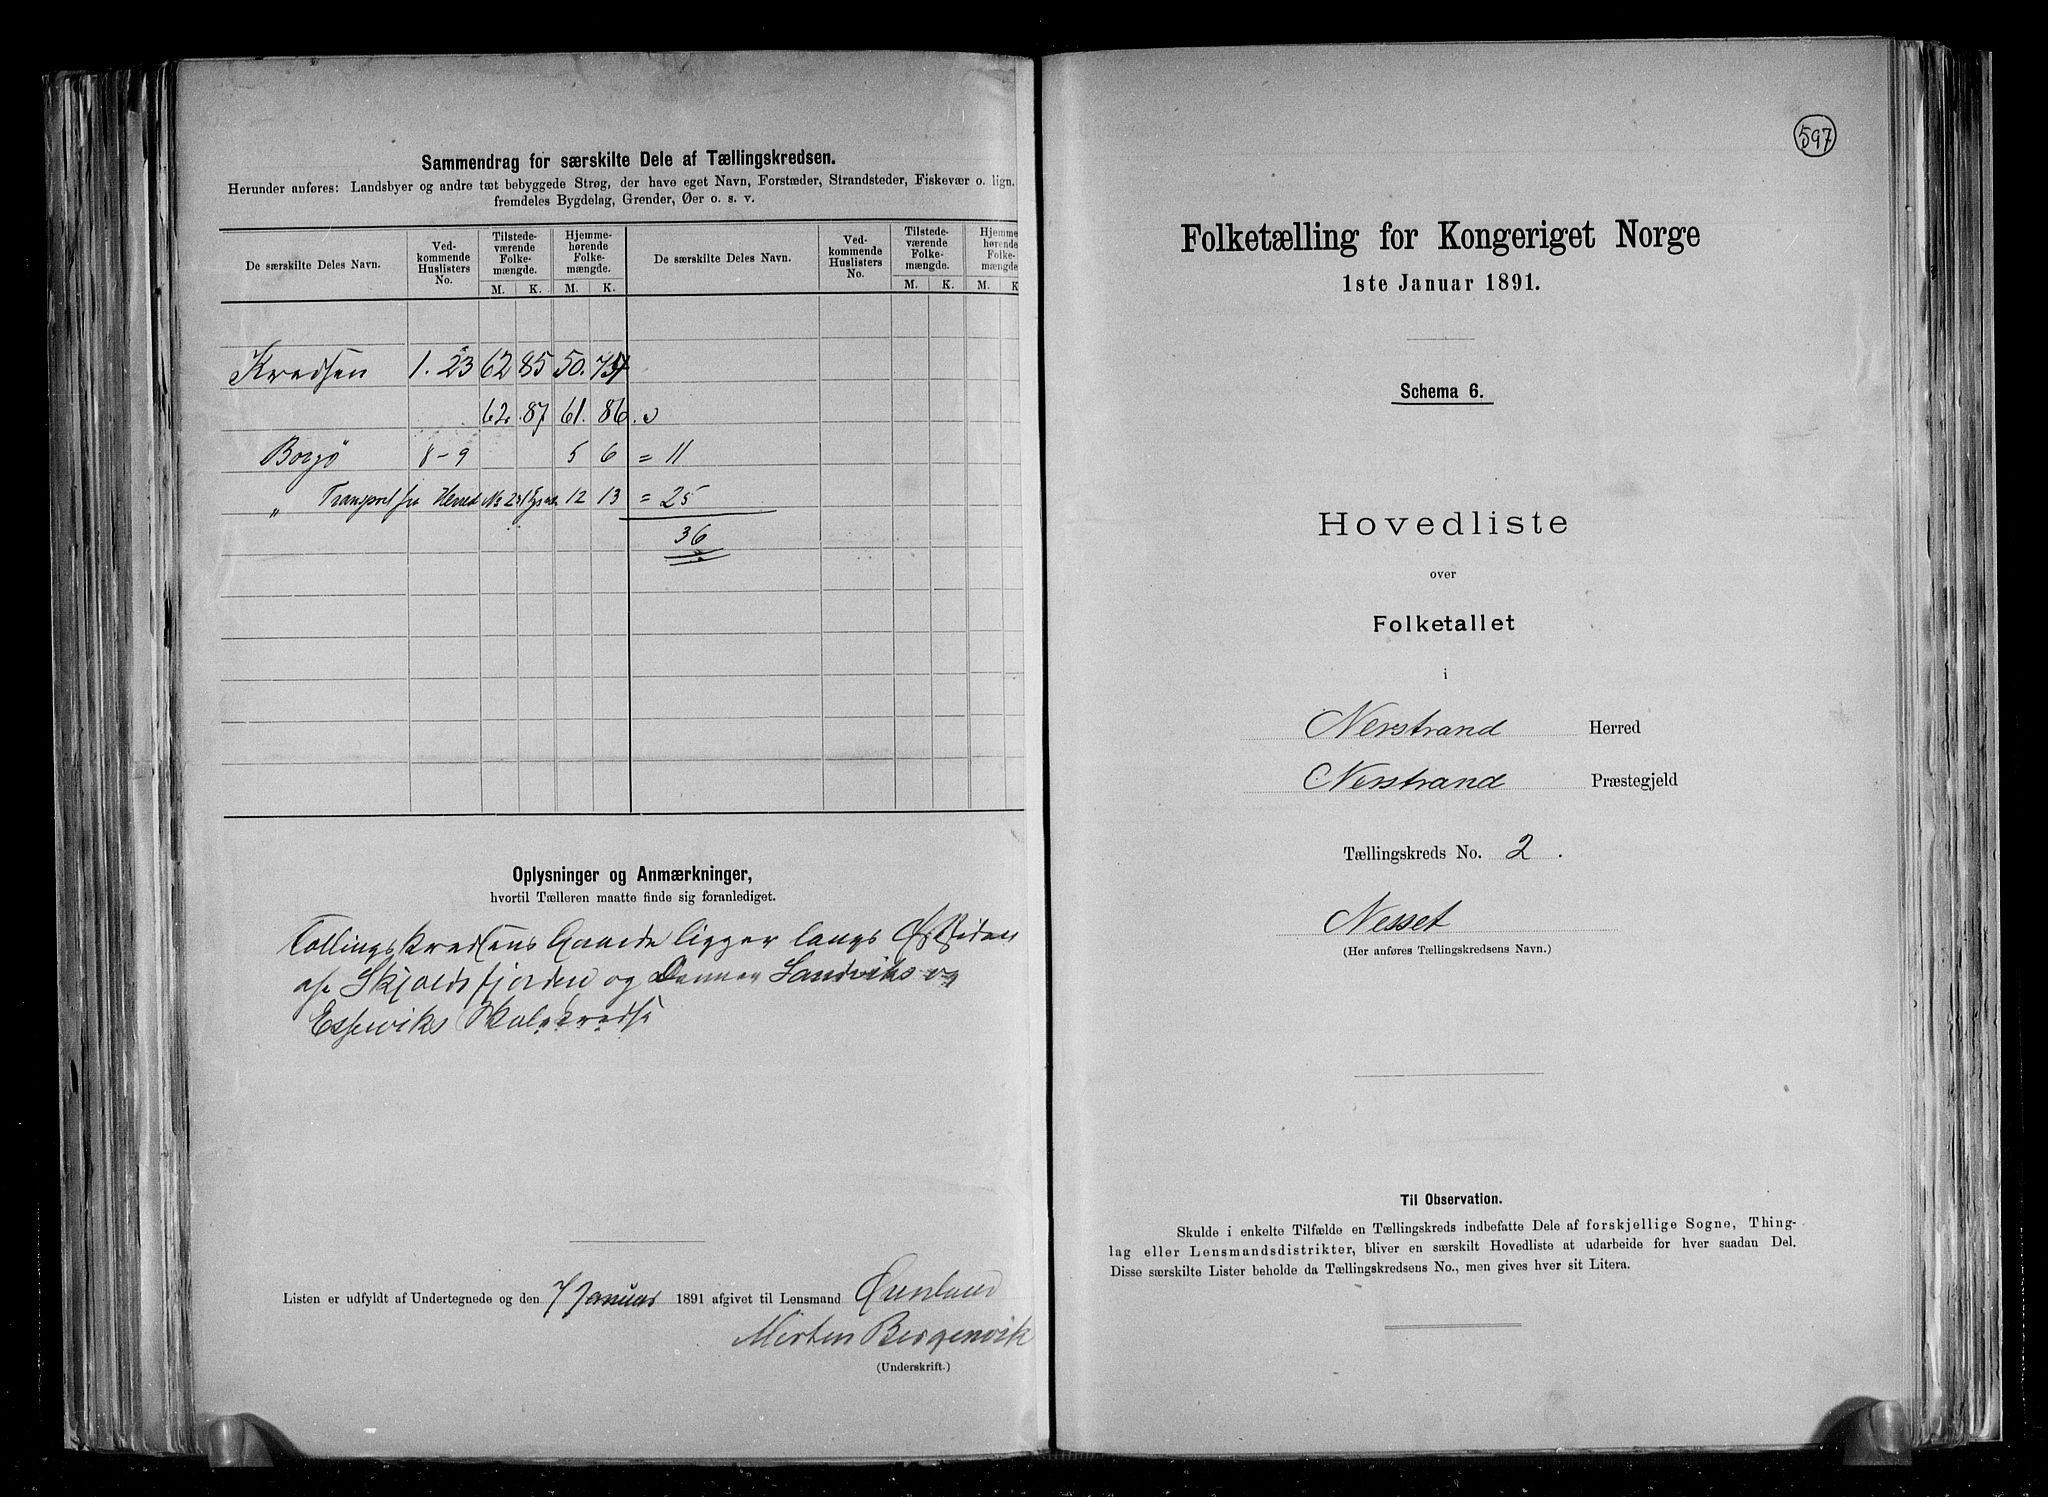 Sammendrag for særskilte Dele af Tællingskredsen.
Herunder anføres: Landsbyer og andre tæt bebyggede Strøg, der have eget Navn, Forstæder, Strandsteder, Fiskevær o. lign.
fremdeles Bygdelag, Grender, Øer o. s. v.
De særskilte Deles Navn. Ved-kommende Huslisters No. Tilstede-værende Folke-mængde. Hjemme-hørende Folke-mængde. De særskilte Deles Navn. Ved-kommende Huslisters No. Tilstede-værende Folke-mængde. Hjemme-hørende Folke-mængde.
M. K. M. K. M. K. M. K
Kredsen 1. 23 62 85 50.
62. 87 61. 86.
Borgø 8-9 5 6 = 11
„ Transport fra Herred No 12 13 = 25
36
Oplysninger og Anmærkninger,
hvortil Tælleren maatte finde sig foranlediget.
Tællingskredsens Gaarde ligger langs
af Skjoldsfjorden og Danner Sandviks og
Espeviks Skolekredse
Listen er udfyldt af Undertegnede og den 7 Januar 1891 afgivet til Lensmand
Morten Bergenvik
(Underskrift.)
597
Folketælling for Kongeriget Norge
1ste Januar 1891.
Schema 6.
Hovedliste
over
Folketallet
i
Nerstrand Herred
Nerstrand Præstegjeld
Tællingskreds No. 2.
Nesset
(Her anføres Tællingskredsens Navn.)
Til Observation.
Skulde i enkelte Tilfælde en Tællingskreds indbefatte Dele af forskjellige Sogne, Thing-
lag eller Lensmandsdistrikter, bliver en særskilt Hovedliste at udarbeide for hver saadan Del.
Disse særskilte Lister beholde da Tællingskredsens No., men gives hver sit Litera.